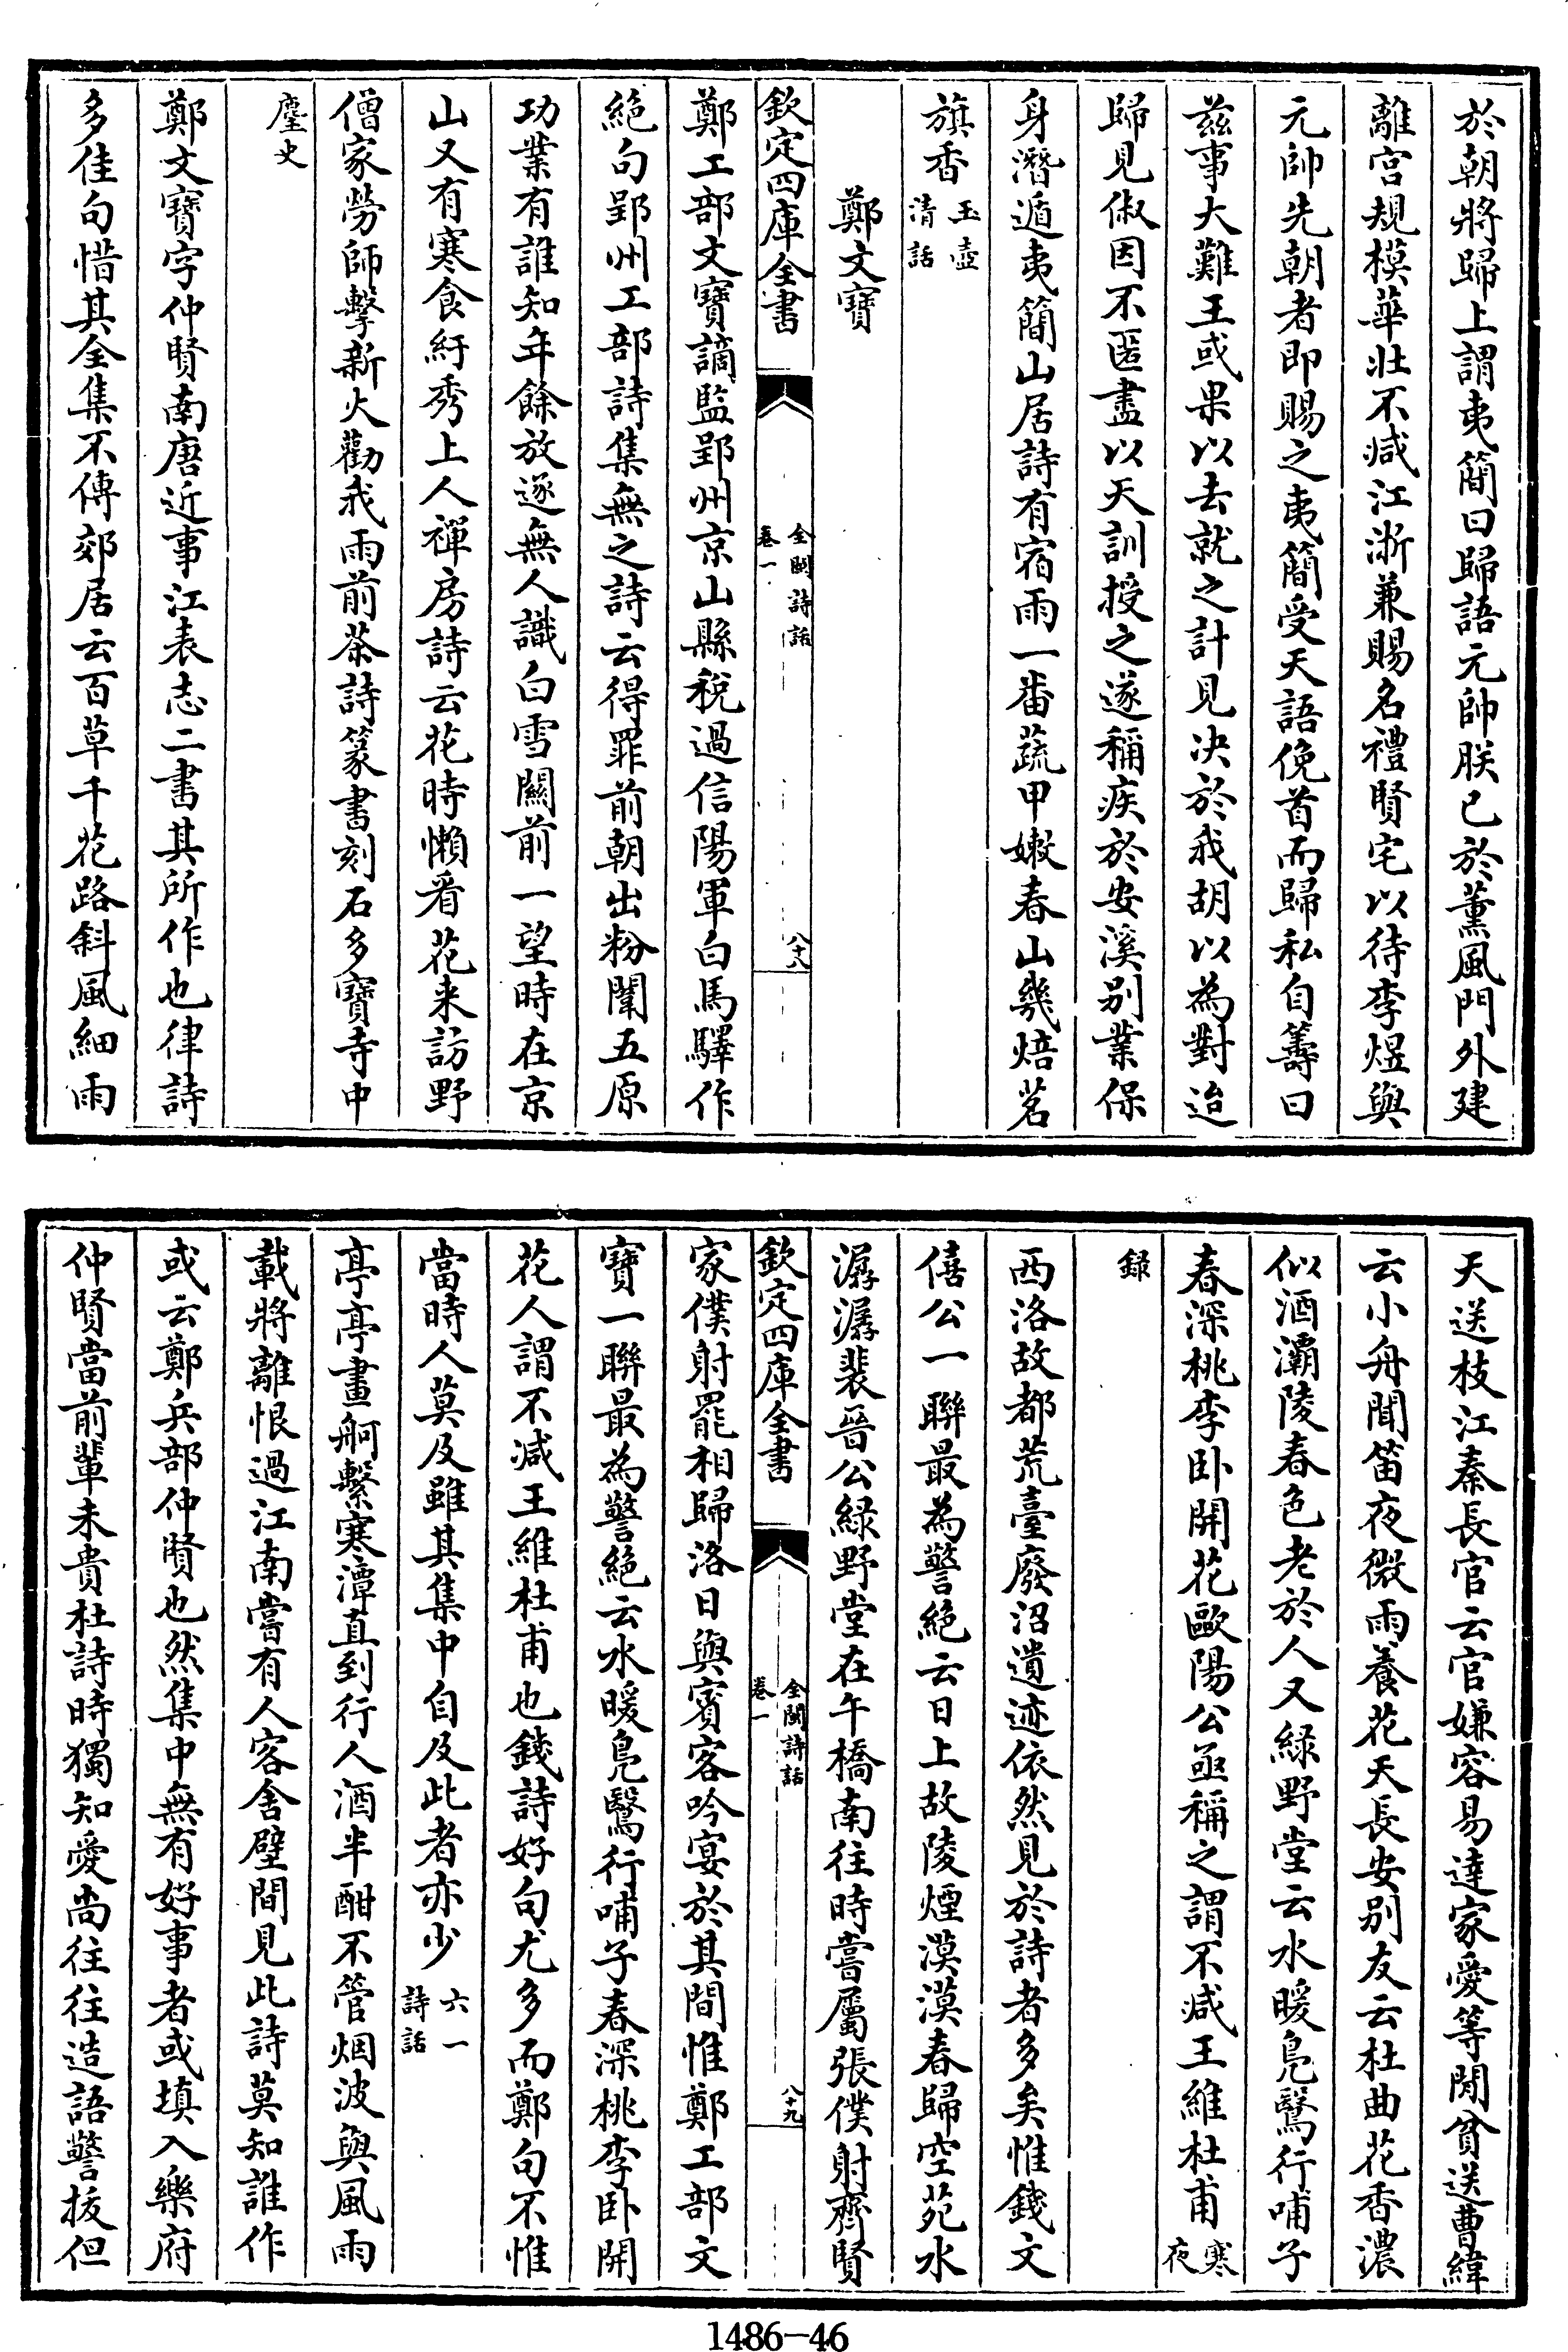 於朝將歸上謂夷簡曰歸語元帥朕已於薫風門外建
離宫規模華壮不减江浙兼賜名禮賢宅以待李煜與
元帥先朝者即賜之夷簡受天語俛首而歸私自籌曰
兹事大難王或果以去就之計見决於我胡以為對迨
歸見俶因不匿盡以天訓授之遂稱疾於安溪别業保
身潛遁夷簡山居詩有宿雨一番蔬甲嫩春山幾焙茗
旗香玉壺清話
鄭文寶
欽定四庫全書 全閩詩話 卷一 八十八
鄭工部文寶謫監郢州京山縣稅過信陽軍白馬驛作
絶句郢州工部詩集無之詩云得罪前朝出粉闈五原
功業有誰知年餘放逐無人識白雪闗前一望時在京
山又有寒食紆秀上人禪房詩云花時懶看花来訪野
僧家勞師擊新火勸我雨前茶詩篆書刻石多寶寺中
麈史
鄭文寶字仲賢南唐近事江表志二書其所作也律詩
多佳句惜其全集不傳郊居云百草千花路斜風細雨
天送枝江秦長官云官嫌容易達家愛等閒貧送曹緯
云小舟聞笛夜微雨養花天長安别友云杜曲花香濃
似酒灞陵春色老於人又緑野堂云水暖鳧鷖行哺子
春深桃李卧開花歐陽公亟稱之謂不减王維杜甫寒夜
録
西洛故都荒臺廢沼遺迹依然見於詩者多矣惟錢文
僖公一聯最為警絶云日上故陵煙漠漠春歸空苑水
潺潺裴晉公緑野堂在午橋南往時嘗屬張僕射齊賢
欽定四庫全書 全閩詩話 卷一 八十九
家僕射罷相歸洛日與賓客吟宴於其間惟鄭工部文
寶一聯最為警絶云水暖鳧鷖行哺子春深桃李卧開
花人謂不减王維杜甫也錢詩好句尤多而鄭句不惟
當時人莫及雖其集中自及此者亦少六一詩話
亭亭畫舸繫寒潭直到行人酒半酣不管烟波與風雨
載將離恨過江南嘗有人客舍壁間見此詩莫知誰作
或云鄭兵部仲賢也然集中無有好事者或填入樂府
仲賢當前輩未貴杜詩時獨知愛尚往往造語警拔但
1486-46